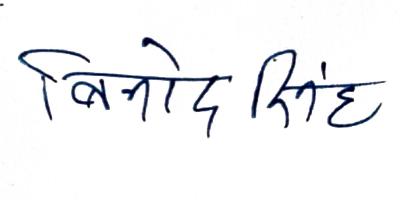 बिनोद सिंह